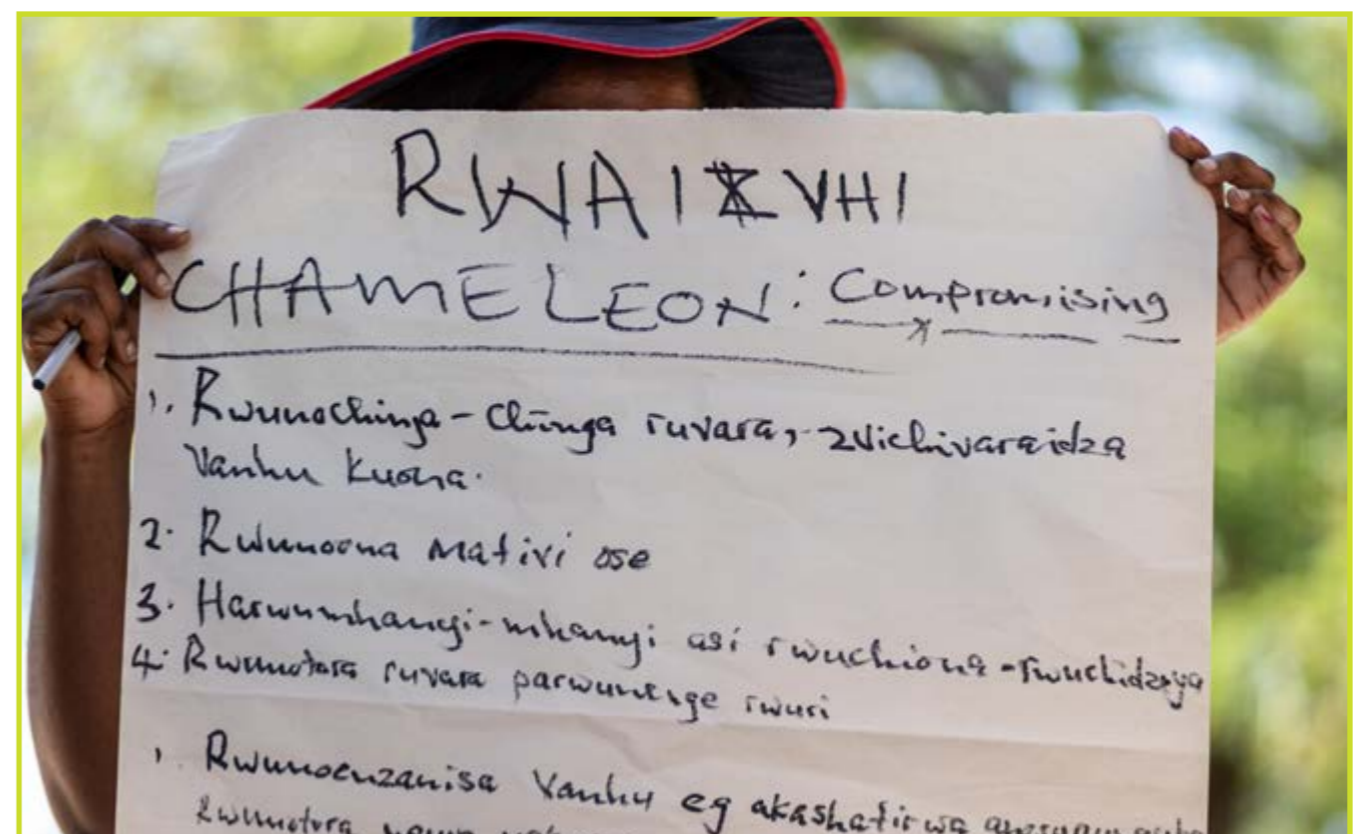 RWAIVHI
CHAMELEON: Compromising
1. Rwunochinja-Chinga ruvara, zvichivaraidza
Vanhu kuona.
2. Rwunoona mativi ose
3. Harwumhanyi-mhanyi asi rwuchiona-rwuchidzoya
4. Rwunotora ruvara parwunenge rwuri
1. Rwunoenzanisa Vanhu eg akashatirwa
Rwunotora